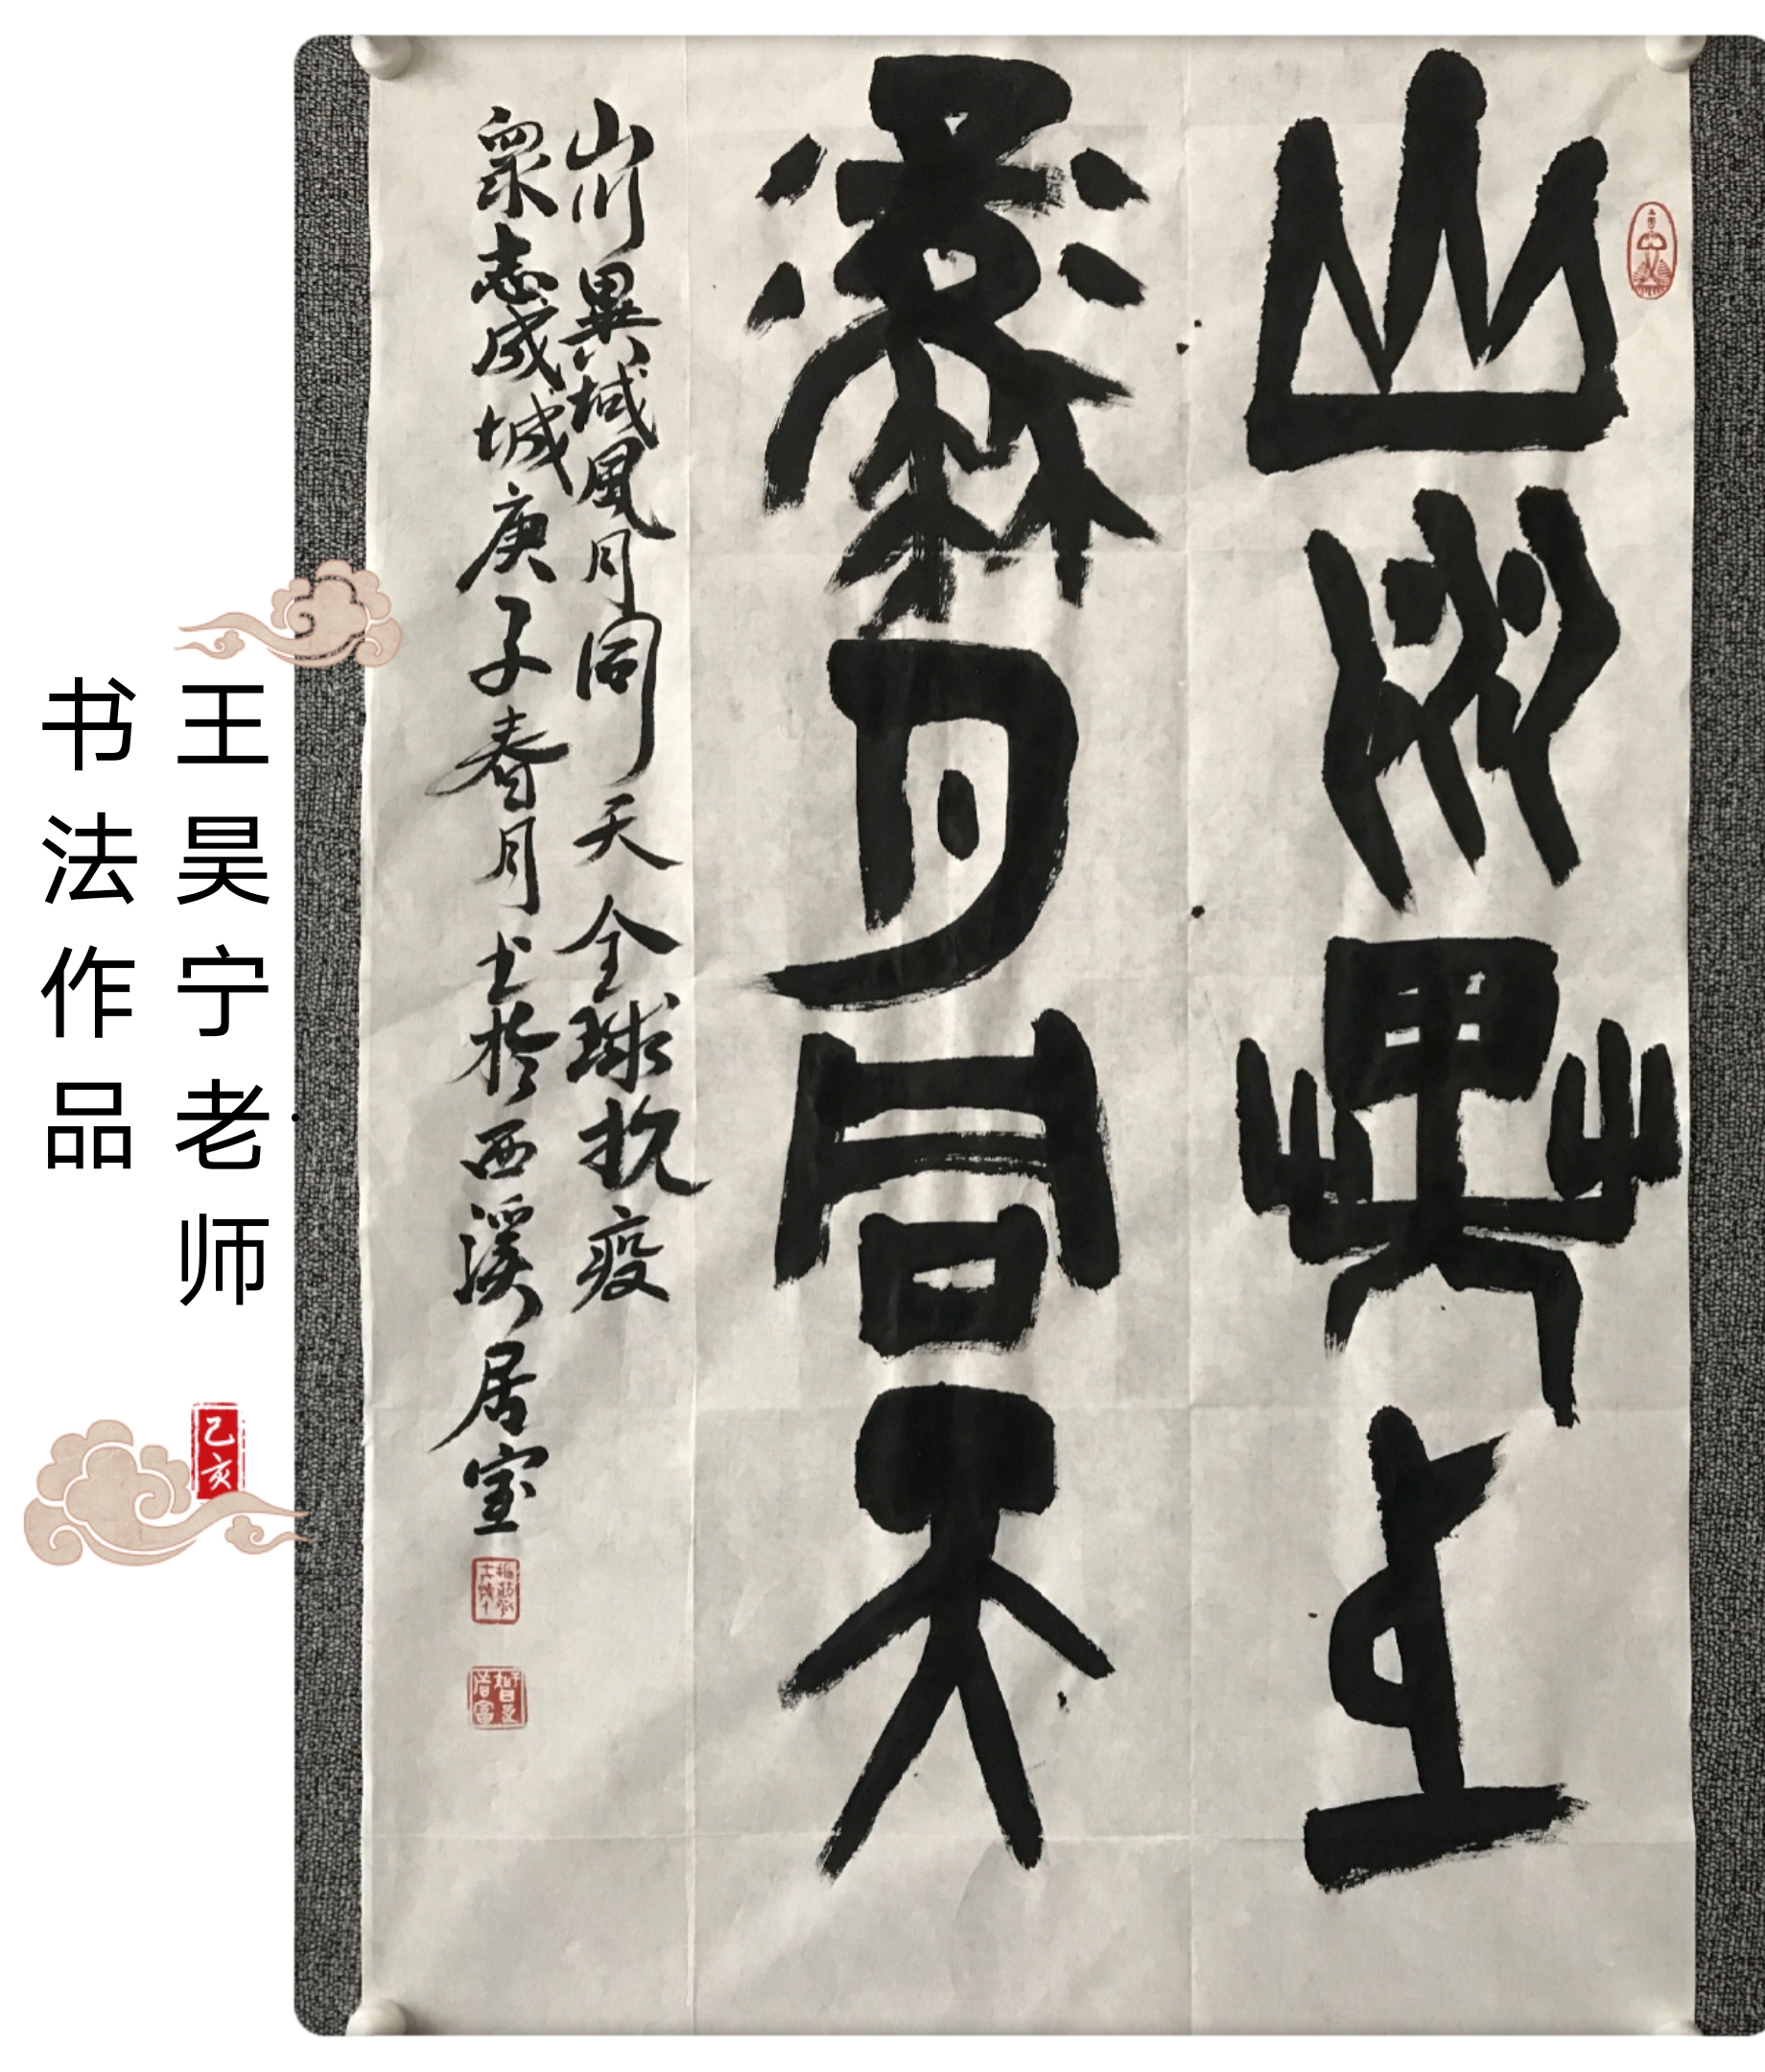 山川異域
風月同天
山川異域風月同天全球抗疫
眾志成城庚子春月书於西溪居室
王昊宁老师
书法作品
己亥